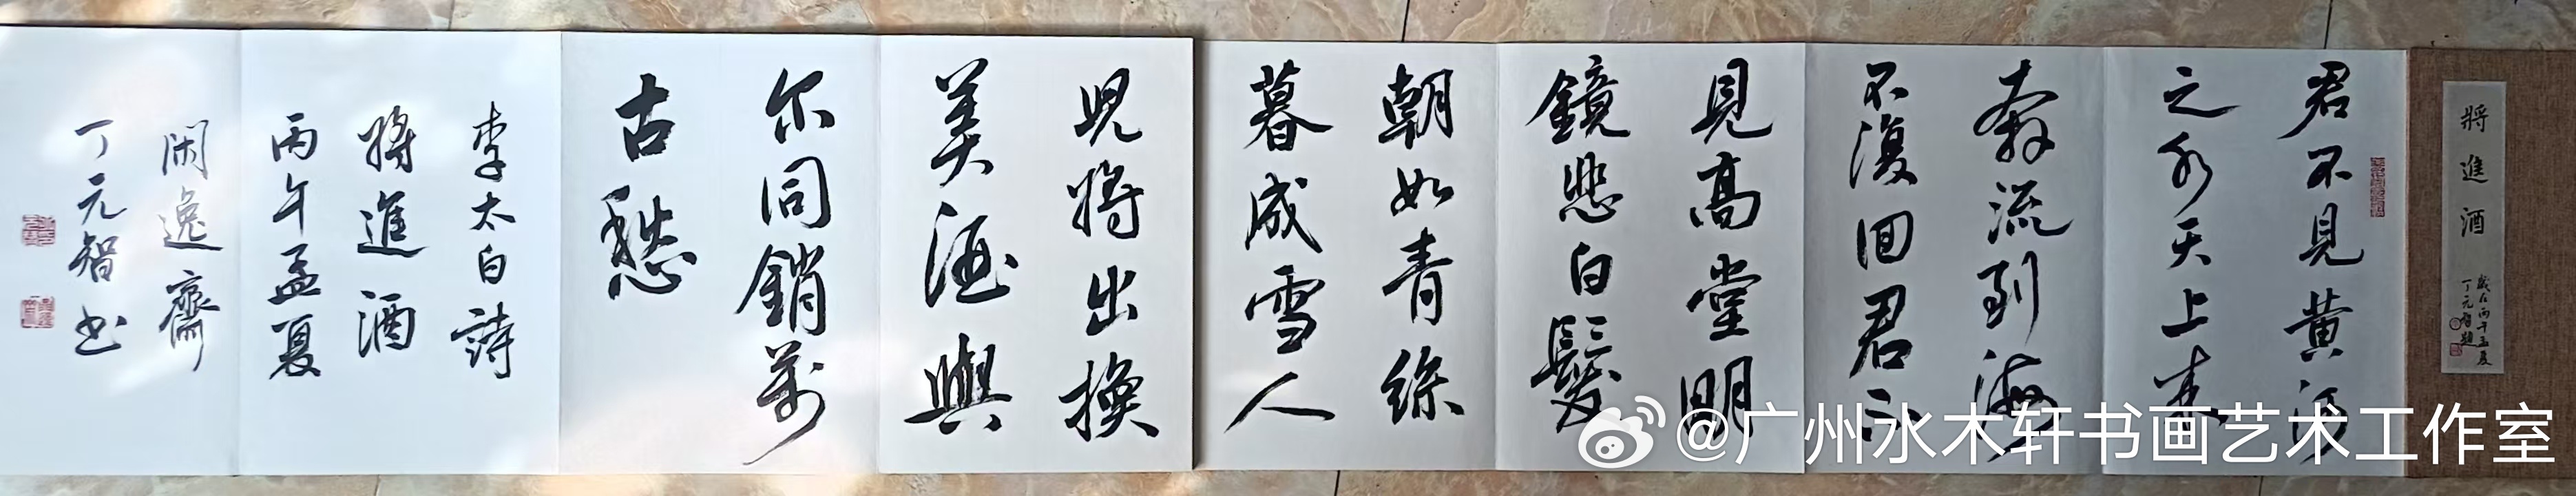 將進酒
歲在丙午孟夏
丁元智題
君不見黄河
之水天上来
奔流到海
不復回君不
見高堂明
鏡悲白髮
朝如青絲
暮成雪人
児将出換
美酒與
尔同銷萬
古愁
李太白詩
将進酒
丙午孟夏
閑逸齋
丁元智书
@广州水木轩书画艺术工作室